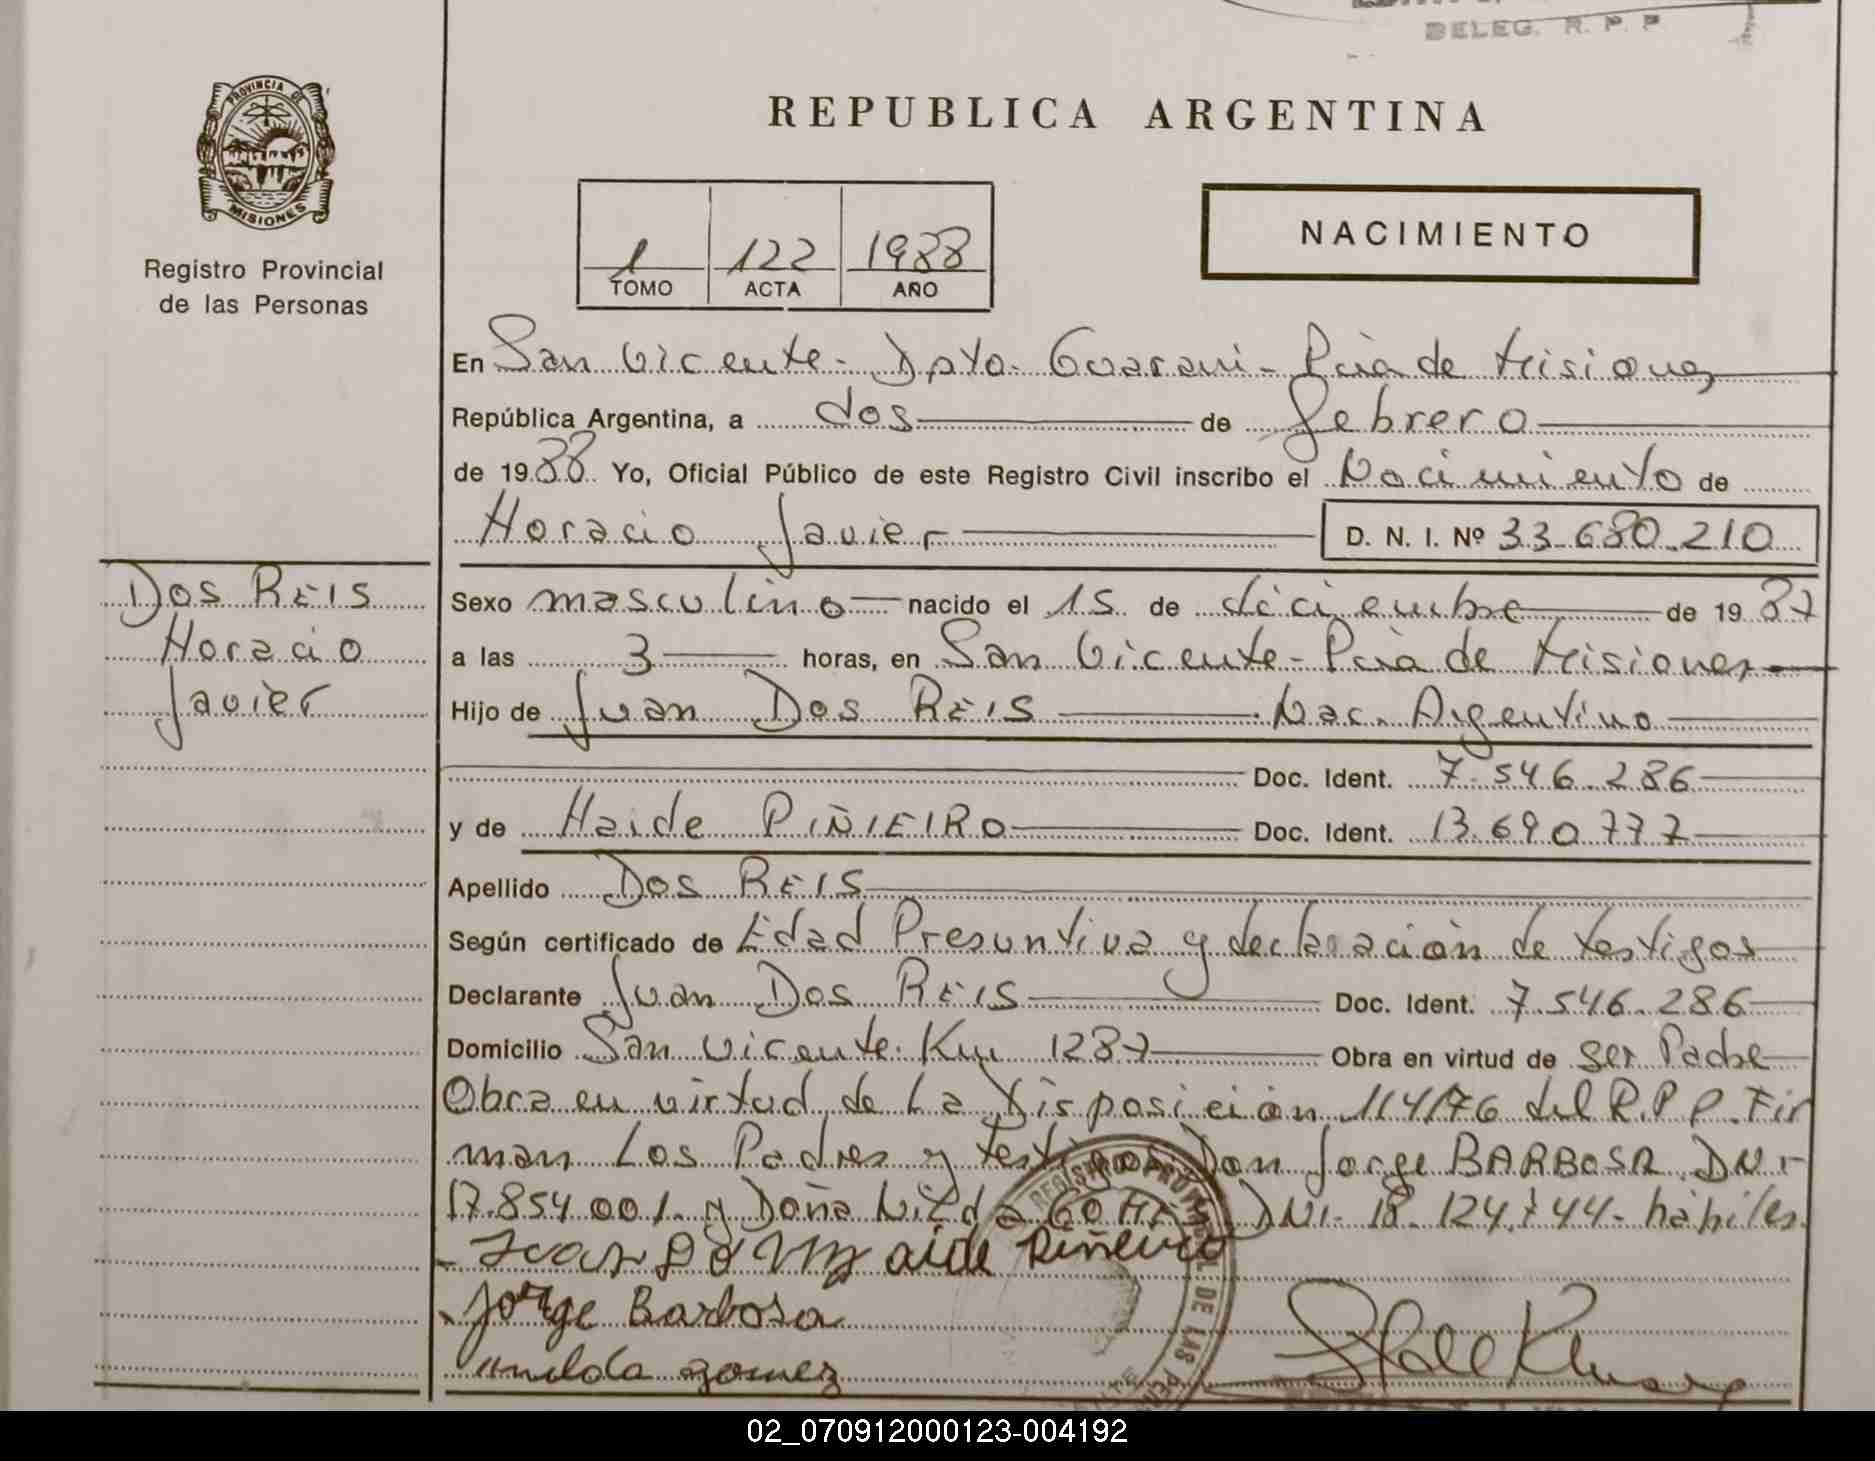 DELEG. R. P. P
PROVINCIA DE
MISIONES
Registro Provincial
de las Personas
REPUBLICA ARGENTINA
1 122 1988
TOMO ACTA AÑO
NACIMIENTO
En San Vicente - Dpto. Guarani - Pcia de Misiones
República Argentina, a dos de febrero
de 1988 Yo, Oficial Público de este Registro Civil inscribo el Nacimiento de
Horacio Javier D. N. I. Nº 33.680.210
DOS REIS
Horacio
Javier
Sexo masculino nacido el 15 de diciembre de 1987
a las 3 horas, en San Vicente - Pcia de Misiones
Hijo de Juan DOS REIS Nac. Argentino
Doc. Ident. 7.546.286
y de Haide PIÑIEIRO Doc. Ident. 13.690.777
Apellido DOS REIS
Según certificado de Edad Presuntiva y declaración de testigos
Declarante Juan DOS REIS Doc. Ident. 7.546.286
Domicilio San Vicente Km 1287 Obra en virtud de ser Padre
Obra en virtud de La Disposición 114/76 del R.P.P. Fir
man Los Padres y testigos Don Jorge BARBOSA DNI
17.854.001 y Doña Nilda GOMES DNI 18.124.744 - hábiles.
aide Piñeiro
Jorge Barbosa
gomez
REGISTRO PROVINCIAL DE LAS
02_070912000123-004192